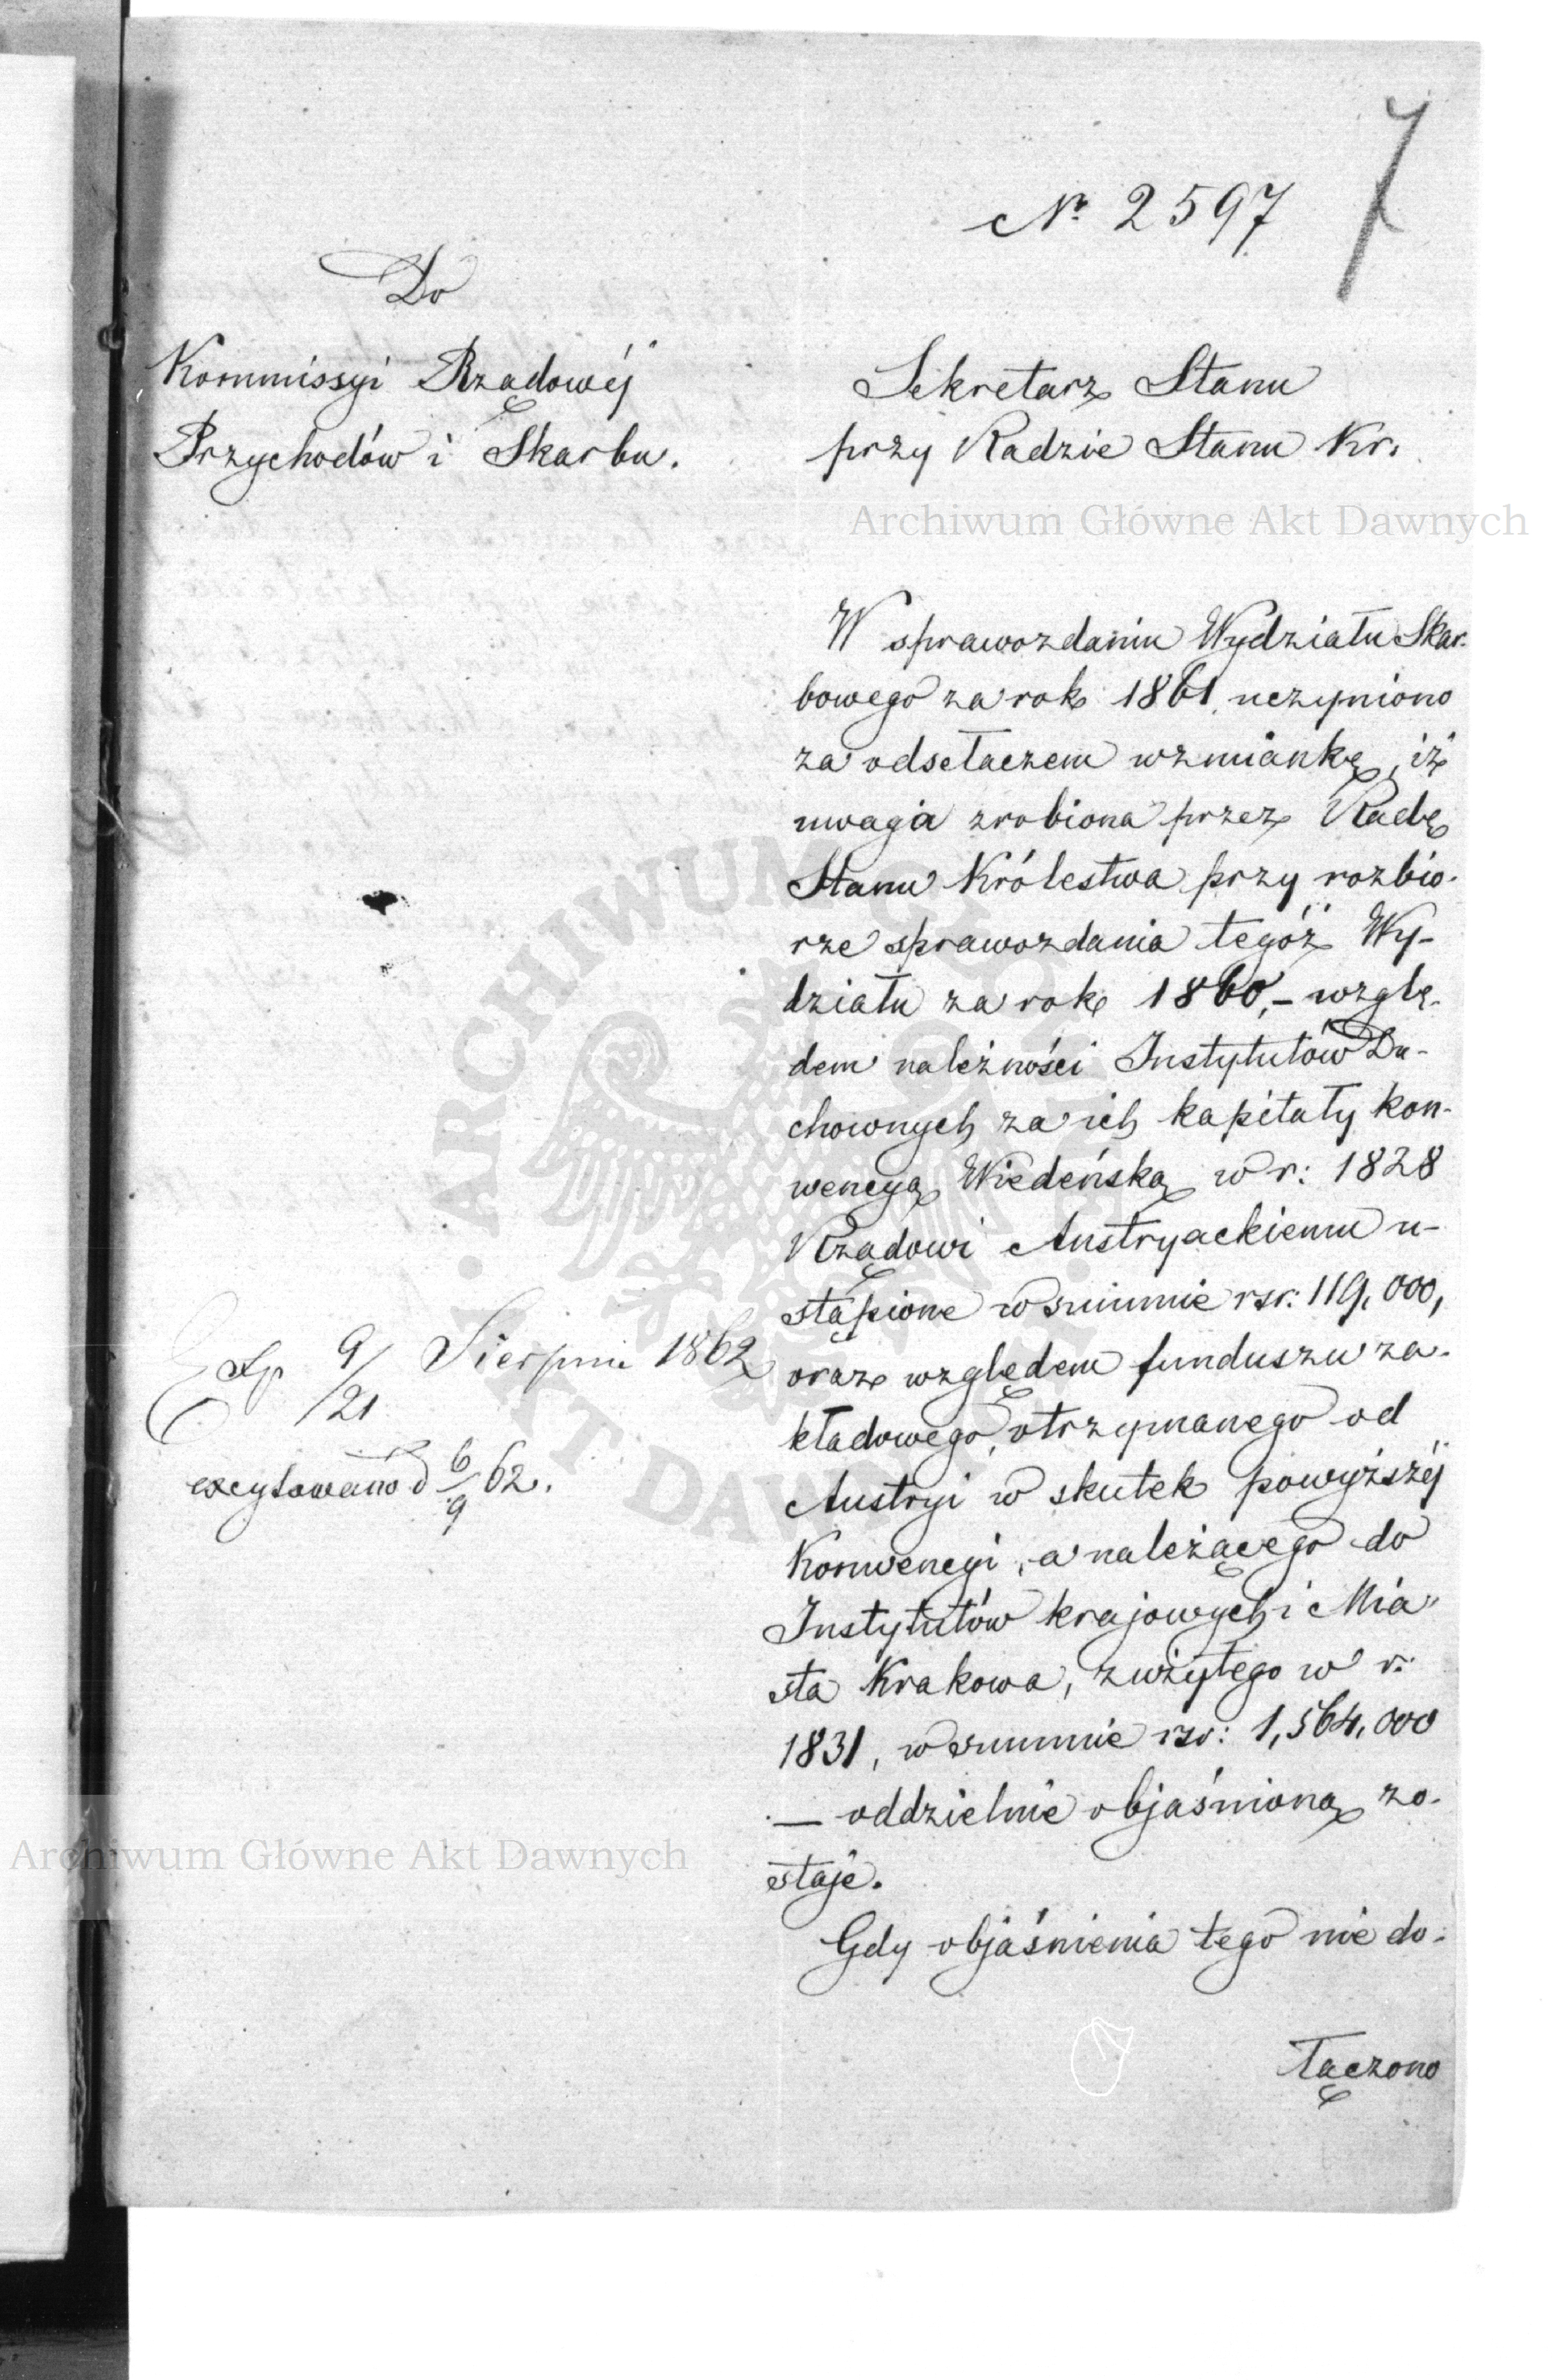 7
Nr. 2597
Do
Kommissyi Rządowéj
Przychodów i Skarbu.
Sekretarz Stanu
przy Radzie Stanu Kr.
Archiwum Główne Akt Dawnych
W sprawozdaniu Wydziału Skar-
bowego za rok 1861, uczyniono
za odsełaczem wzmiankę, iż
uwaga zrobiona przez Radę
Stanu Królestwa przy rozbio-
rze sprawozdania tegóż Wy-
działu za rok 1860, – wzglę-
dem należności Instytutów Du-
chownych za ich kapitały kon-
wencyą Wiedeńską w r: 1828
Rządowi Austryackiemu u-
stąpione w summie rsr: 119,000,
oraz względem funduszu za-
kładowego, otrzymanego od
Austryi w skutek powyższéj
Konwencyi, a należącego do
Instytutów krajowych i Mia-
sta Krakowa, zużytego w r:
1831, w summie rsr: 1,564,000
— oddzielnie objaśnioną zo-
staje.
Gdy objaśnienia tego nie do-
łączono
Exp 9/21 Sierpnia 1862
excytowano d 6/9 62.
Archiwum Główne Akt Dawnych
ARCHIWUM GŁÓWNE AKT DAWNYCH